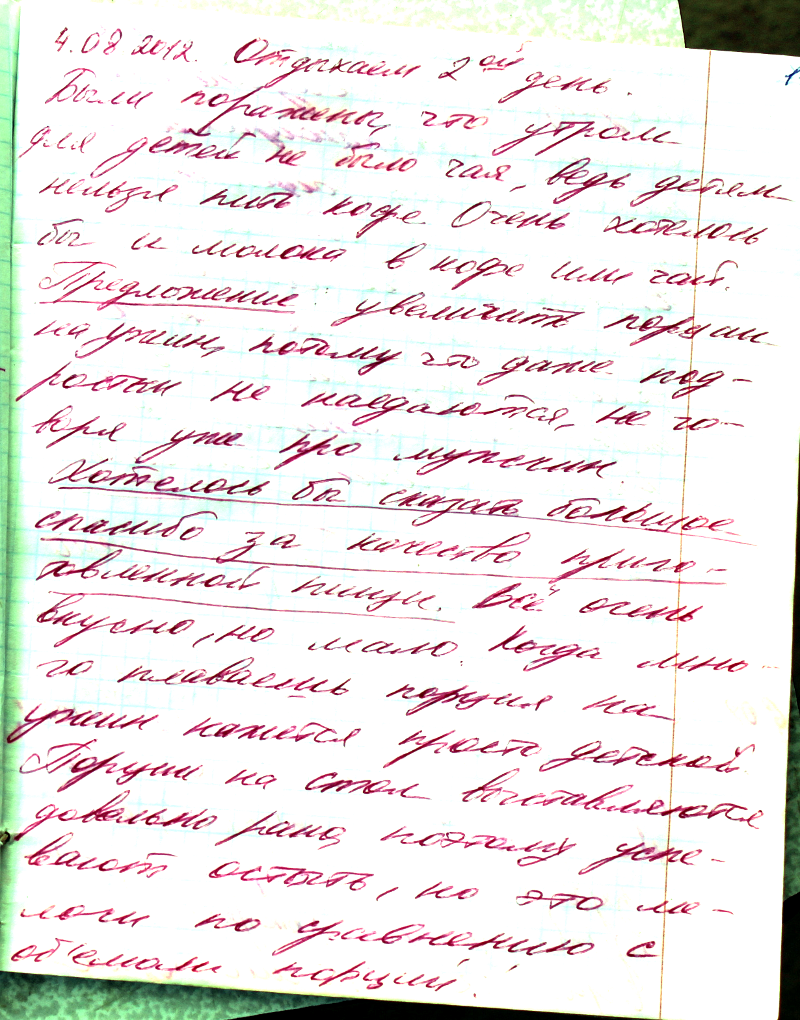 4.08 2012. Отдыхаем 2ой день.
Были поражены, что утром
для детей не было чая, ведь детям
нельзя пить кофе. Очень хотелось
бы и молока в кофе или чай.
Предложение: увеличить порции
на ужин, потому что даже под-
ростки не наедаются, не го-
воря уже про мужчин.
Хотелось бы сказать большое
спасибо за качество приго-
товленной пищи. Всё очень
вкусно, но мало. Когда мно-
го плаваешь порция на
ужин кажется просто детской.
Порции на стол выставляются
довольно рано, поэтому успе-
вают остыть, но это ме-
лочи по сравнению с
объемами порций!